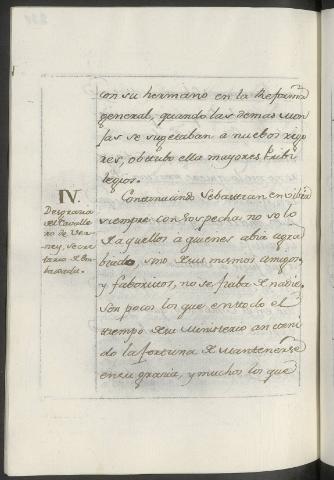 con su hermano en la Reforma
general, quando las demas Mon
jas se sugetaban a nuebos rigo
res, obtubo ella mayores Pribi
legios.
IV.
Desgracia
del Cavalle
ro de Ver
ney, Secre
tario de Em
baxada.
Continuando Sebastian en
siempre con sospecha no solo
de aquellos à quienes abia agra
biado, sino de sus mismos amigos
y faboritos, no se fiaba de nadie.
Son pocos los que en todo el
tiempo de su Ministerio an teni
do la fortuna de mantenerse
en su gracia, y muchos los que